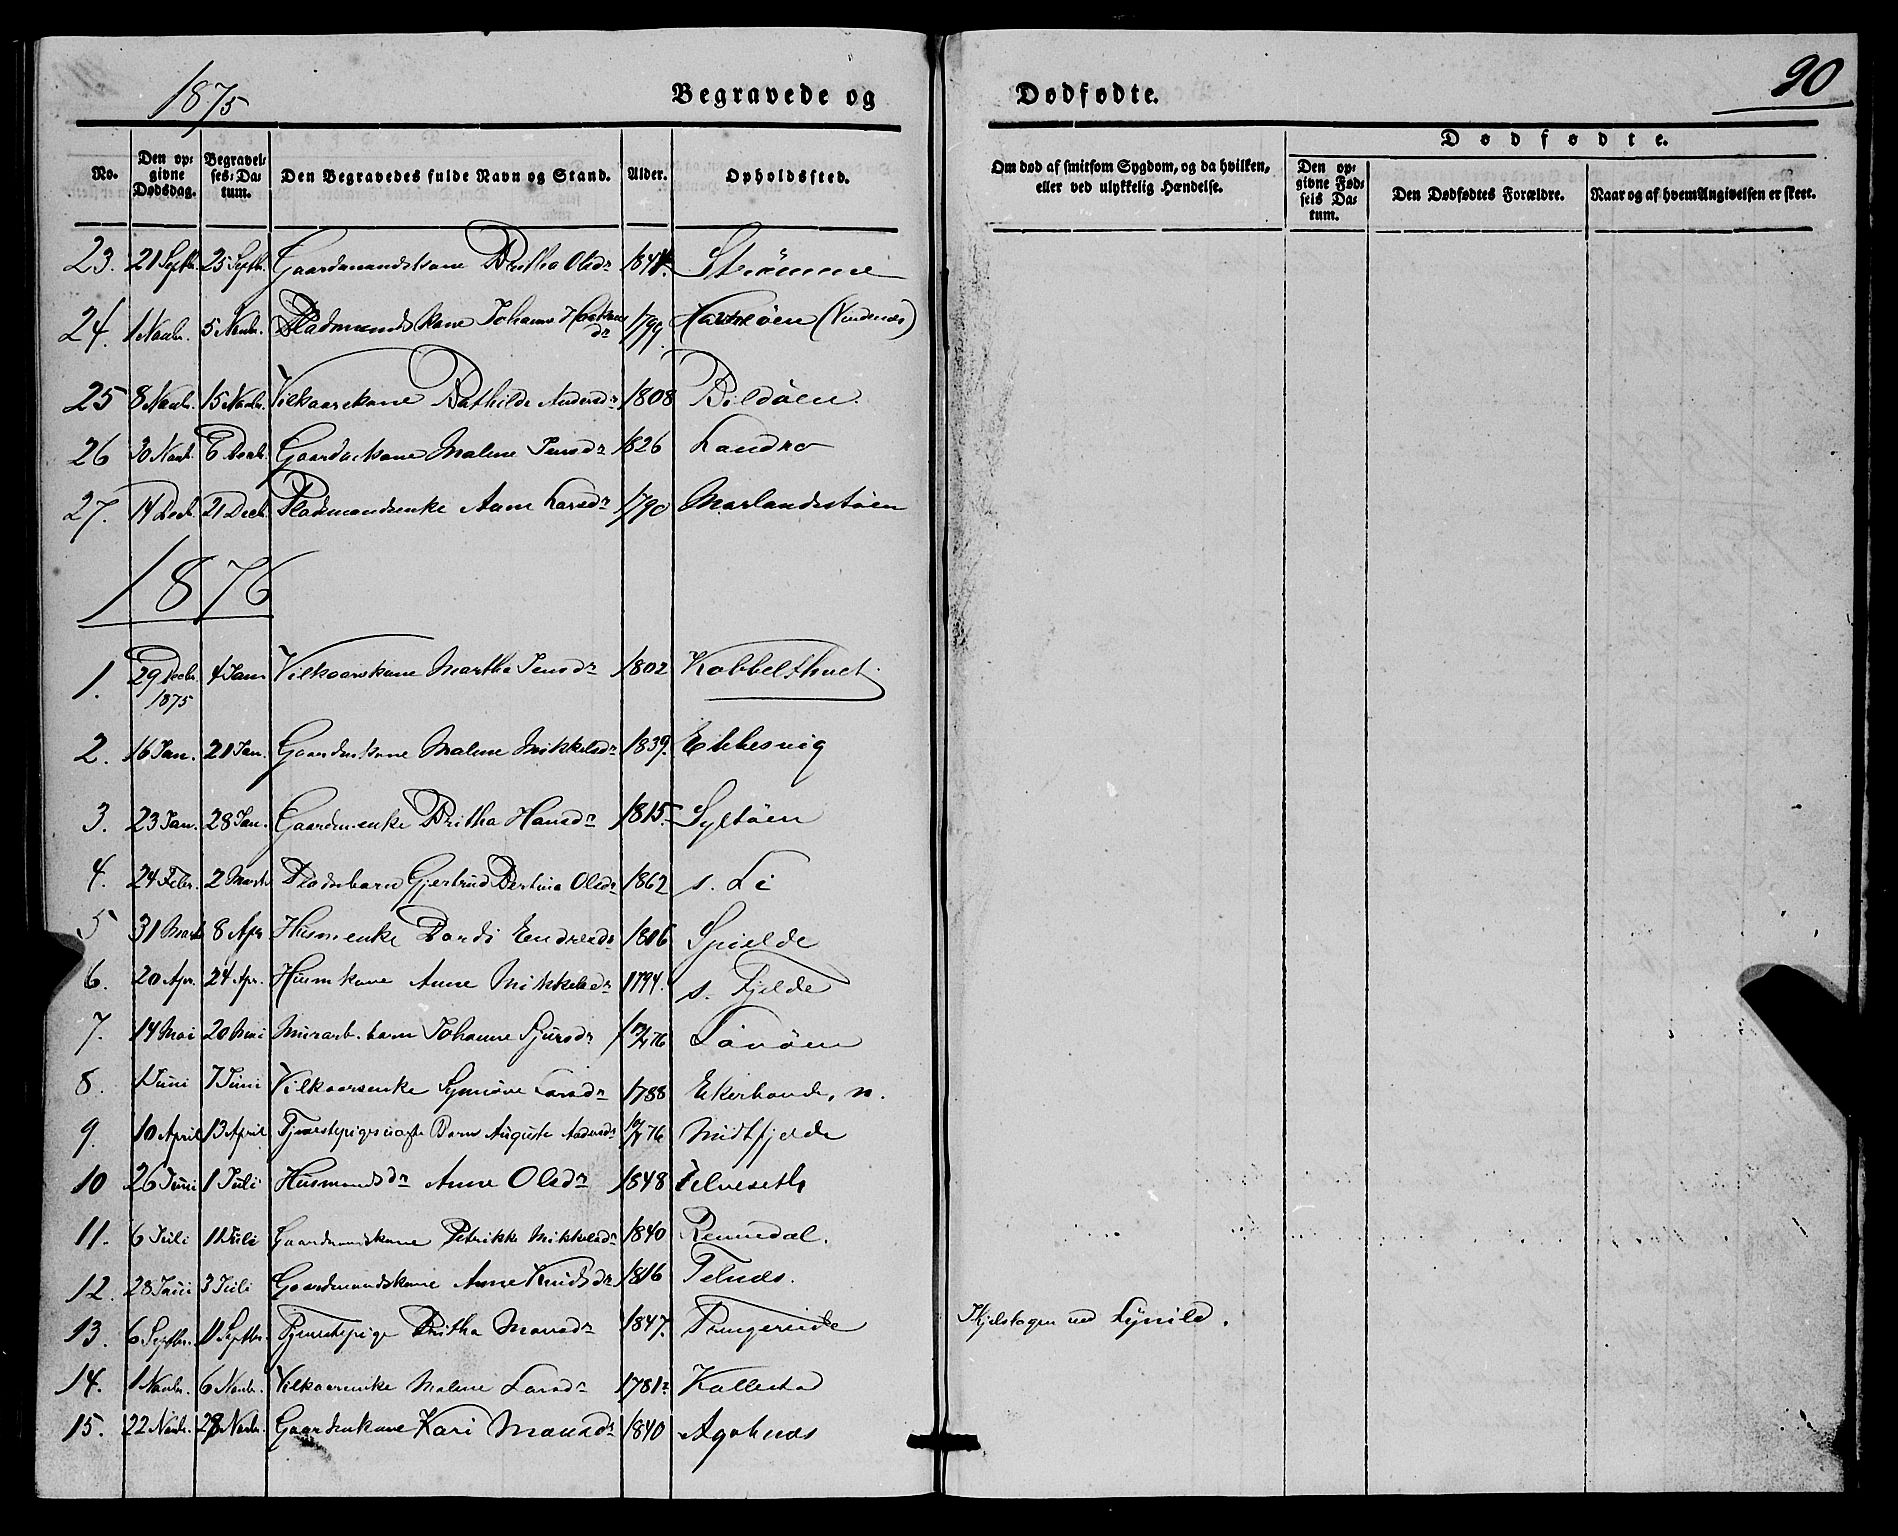 1875
Begravede og Dødfødte.
90
No. Den opgivne Dødsdag. Begravelses-Datum. Den Begravedes fulde Navn og Stand. Alder. Opholdssted. Om død af smitsom Sygdom, og da hvilken, eller ved ulykkelig Hændelse.
Dødfødte.
Den opgivne Fødsels Datum. Den Dødfødtes Forældre. Naar og af hvem Angivelsen er skeet.
23. 21 Septbr. 25 Septbr. Gaardmandskone Britha Olsdr 1844. Strömme
24. 1 Novbr. 5 Novbr. Pladsmands kone Johanne dr 1799. (Vindenæs)
25 8 Novbr. 15 Novbr. Vilkaarskone Bathilde Andersdr 1808 Bildöen.
26 30 Novb. 6 Decbr. Gaardmkone Malene Jensdr 1826 Landro
27. 14 Decb. 21 Decb. Pladsmandsenke Anne Larsdr 1790 Morlandsstöen
1876
1. 29 Decbr. 1875 4 Jan Vilkaarskone Martha Jensdr 1802 Kobbelthvet
2. 16 Jan. 21 Jan. Gaardmkone Malene Mikkelsdr 1839. Ebbesvig
3. 23 Jan. 28 Jan. Gaardmenke Britha Hansdr 1815. Syltöen
4. 24 Febr. 2 Marts Pladsbarn Gjertrud Bertina Olsdr 1862 s. Li
5 31 Marts 8 Apr Husmenke Bordi Endresdr 1806 Spielde
6. 20 Apr. 24 Apr. Husmkone Anne Mikkelsdr 1794. s. Fjelde
7. 14 Mai 20 Mai Murarb. barn Johanne Sjursdr Lövöen
8. 1 Juni 7 Juni Vilkaarsenke Synnöve Larsdr 1788 Ekerhovde, n.
9. 10 April 13 April Tjenestepiges uægte Barn Auguste Andersdr Midtfjelde
10 26 Juni 1 Juli Husmandsdr Anne Olsdr 1848 Telveseth
11. 6 Juli 11 Juli Gaardmandskone Petrikke Mikkelsdr 1840 Rennedal.
12. 28 Juni 3 Juli Gaardmandskone Anne Knudsdr 1816 Telnæs.
13. 6 Septbr. 11 Septbr. Tjenestepige Britha Monsdr 1847. Tungeside Ihjelslagen ved Lynild.
14. 1 Novbr. 6 Novbr. Vilkaarsenke Malene Larsdr 1781 Kallestad
15. 22 Novbr. 28 Novbr. Gaardmkone Kari Monsdr 1840 Agotnæs